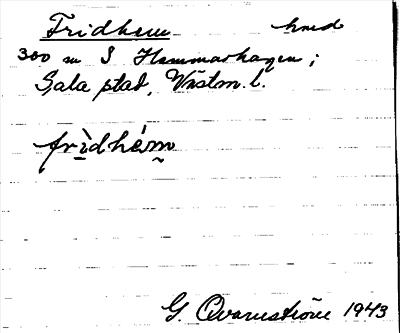 Fridhem hmd
300 m S Hammarhagen;
Sala stad, Västm. l.
frìdhém
G. Qvarnström 1943